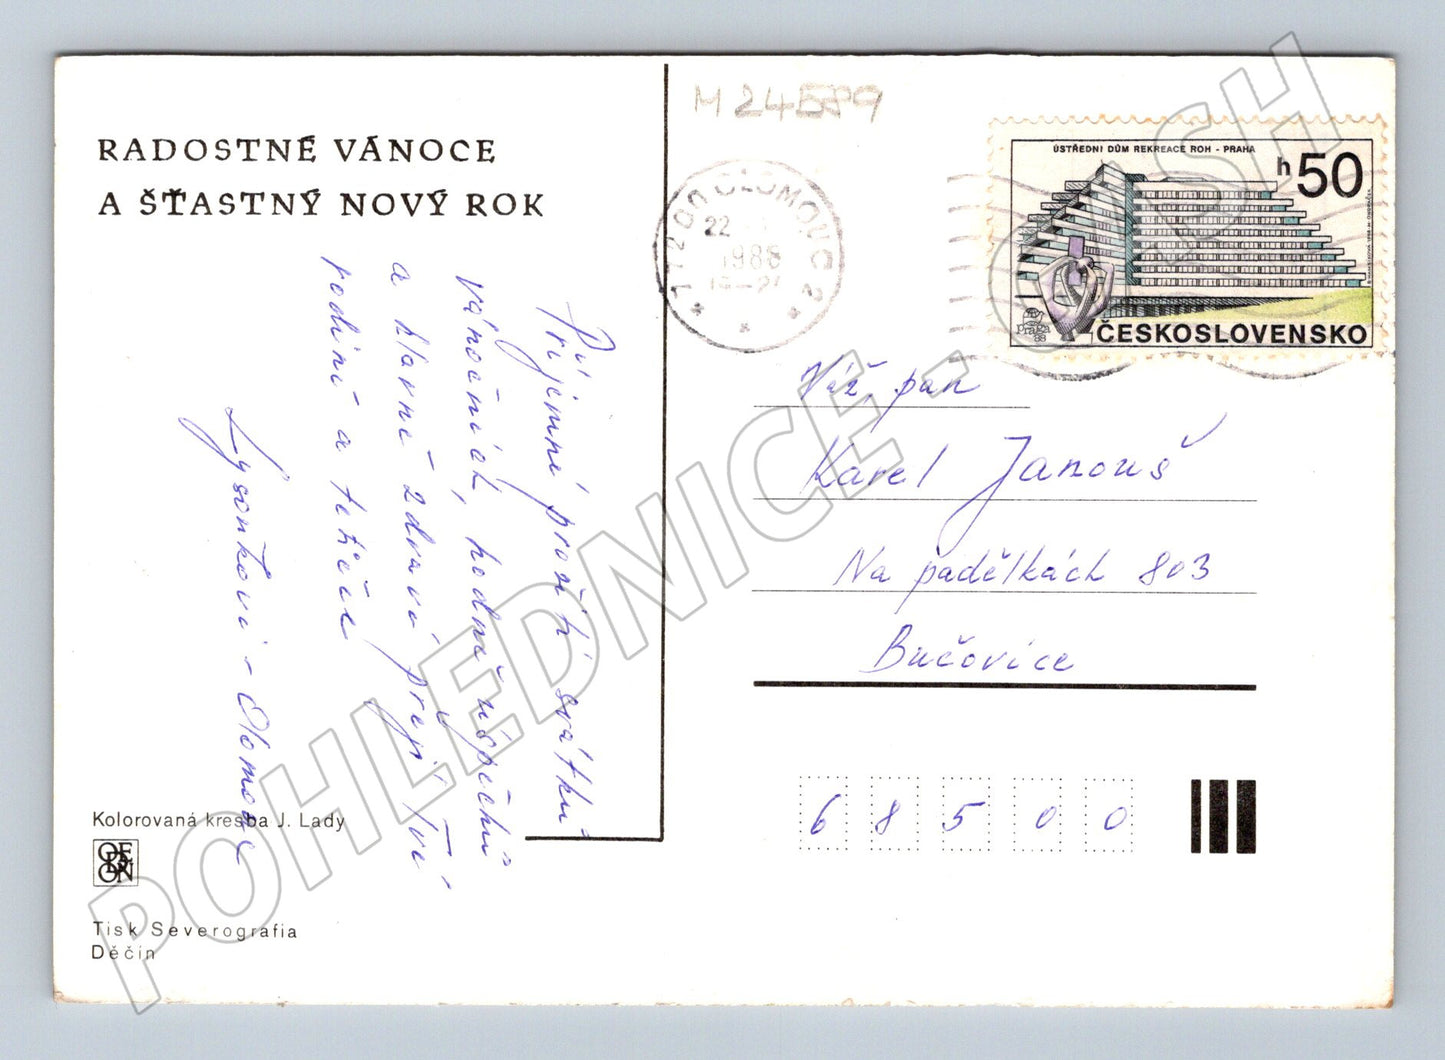 RADOSTNÉ VÁNOCE
A ŠŤASTNÝ NOVÝ ROK
Příjemné prožití svátků
vánočních, hodně úspěchů
a hlavně zdraví přejí Tvé
rodině a tetičce
Lysoňkovi - Olomouc
Kolorovaná kresba J. Lady
ODEON
Tisk Severografia
Děčín
M 24589
77200 OLOMOUC 2
22
1988
ÚSTŘEDNÍ DŮM REKREACE ROH - PRAHA
h 50
praga 88
ČESKOSLOVENSKO
Váž. pan
Karel Janouš
Na padělkách 803
Bučovice
68500
POHLEDNICE - CASH